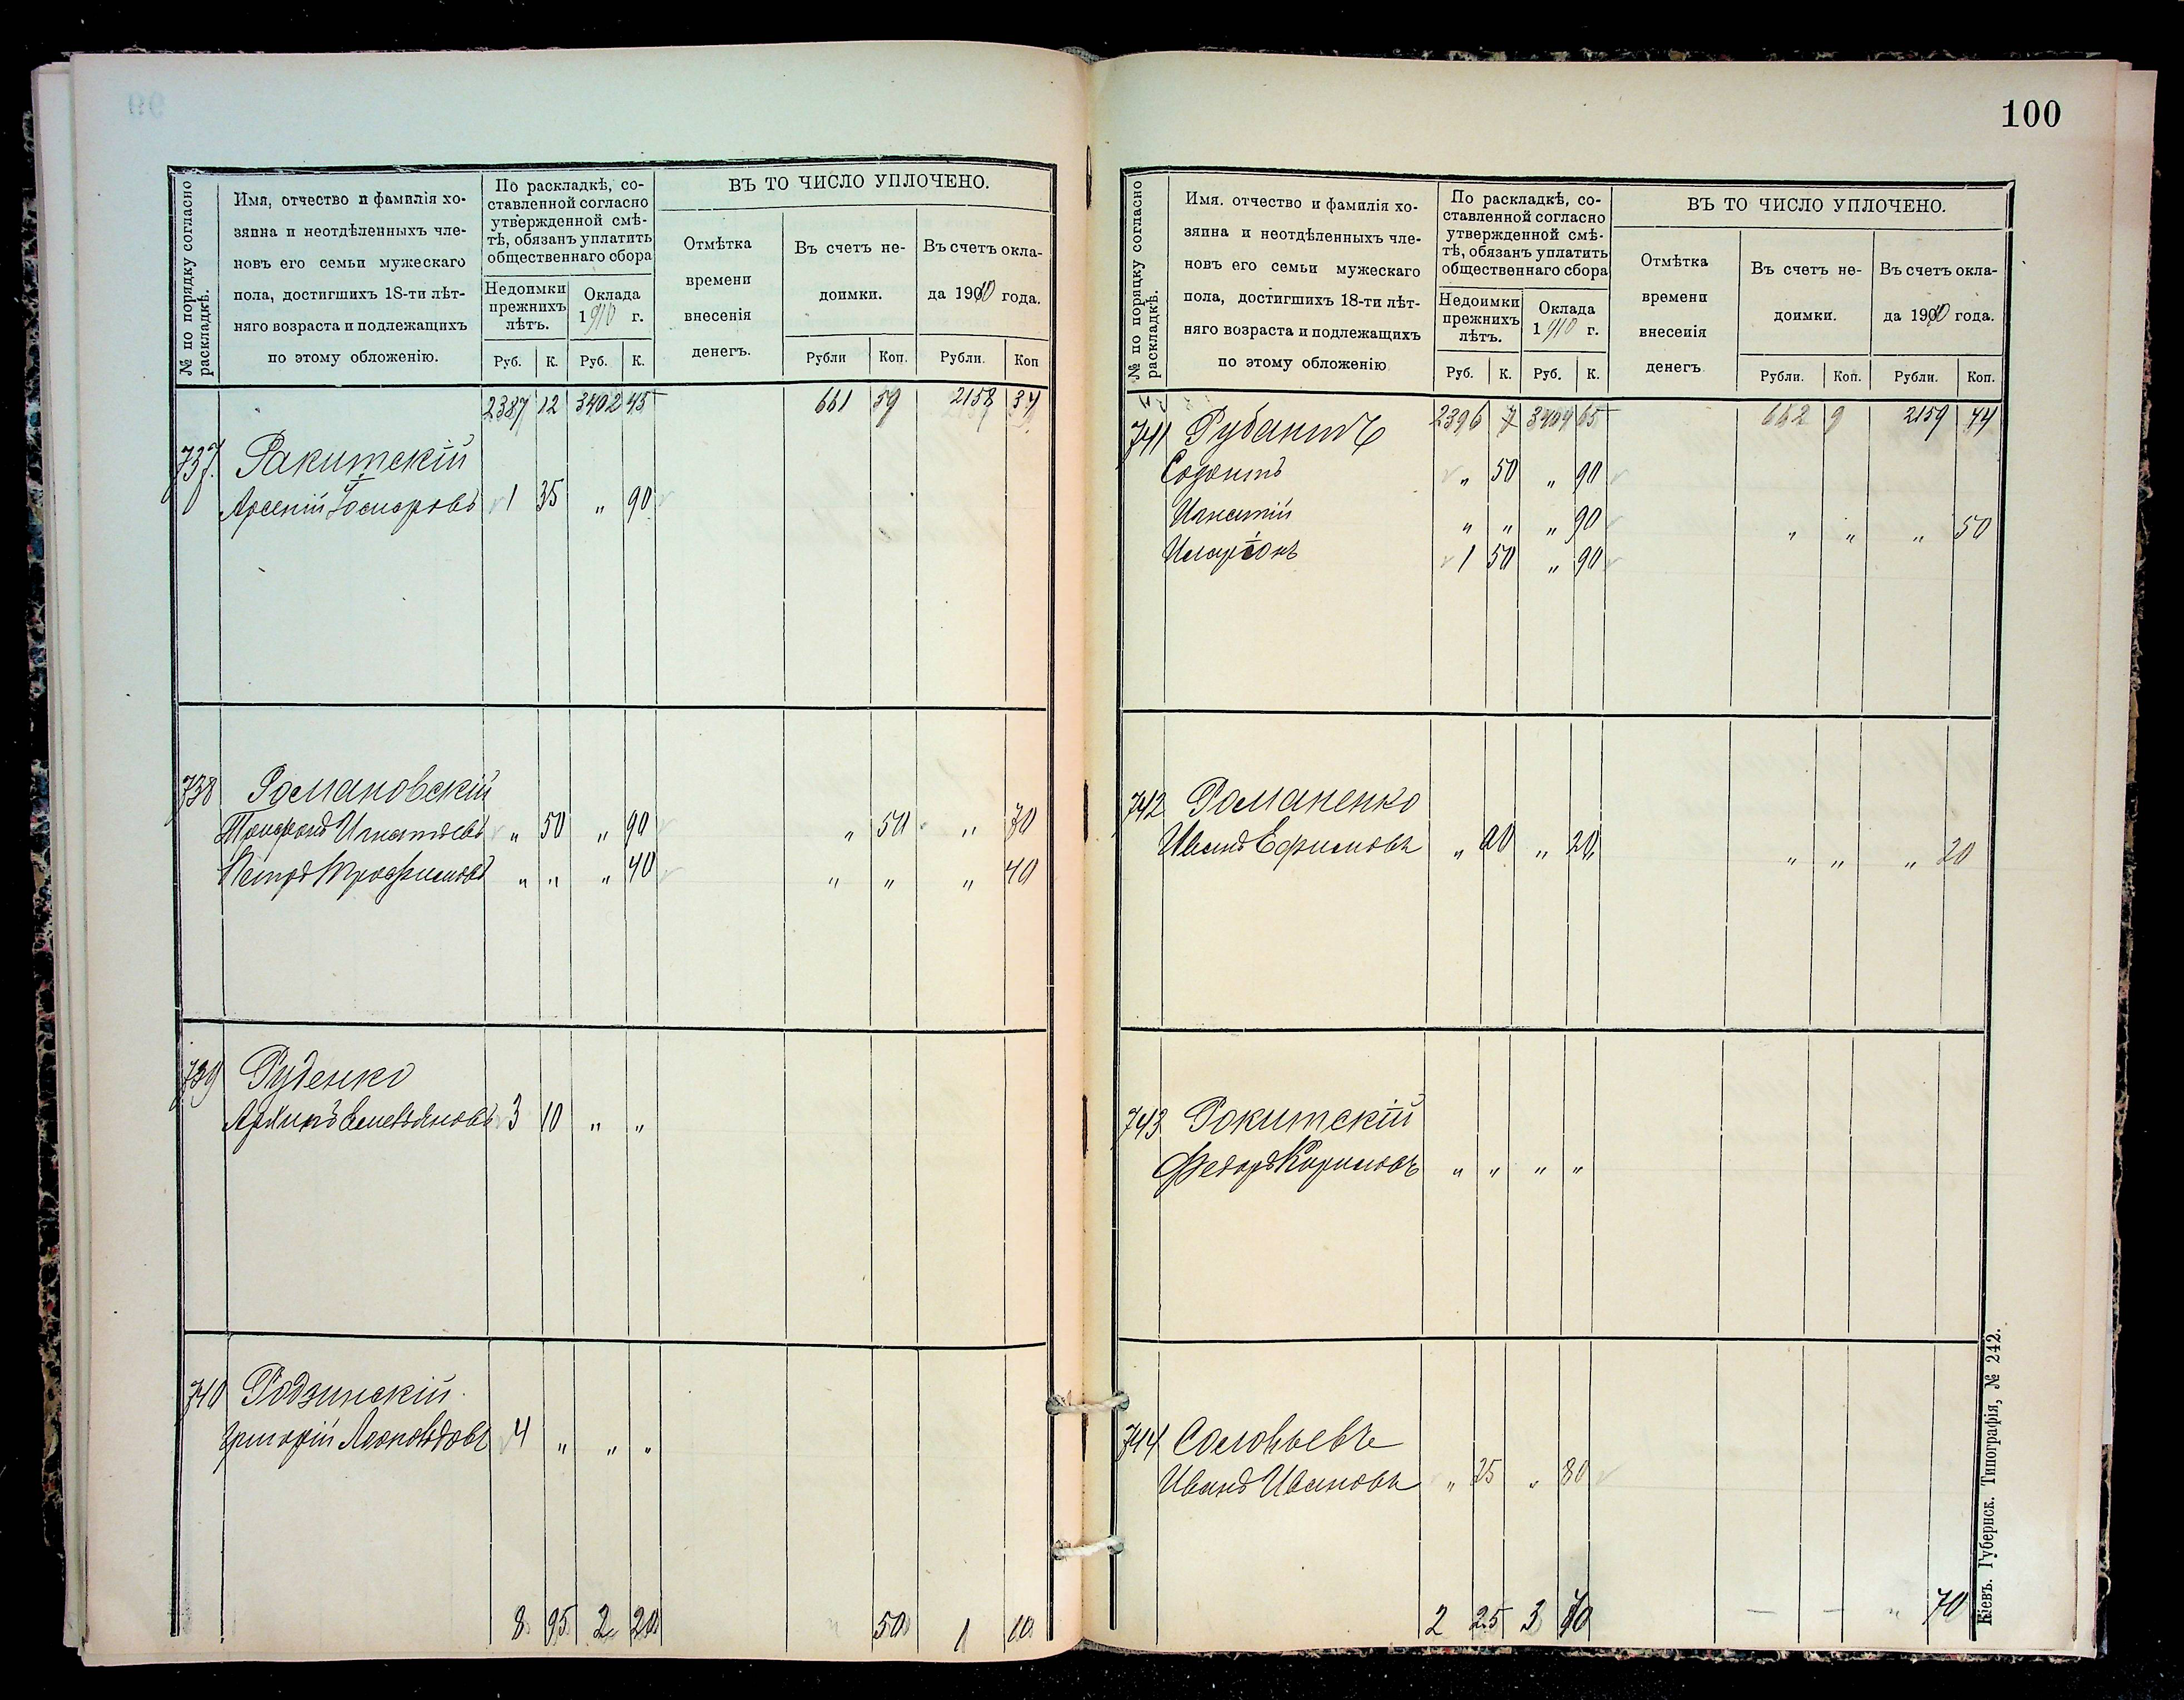 100
№ по порядку согласно раскладкѣ.
Имя, отчество и фамилія хо-
зяина и неотдѣленныхъ чле-
новъ его семьи мужескаго
пола, достигшихъ 18-ти лѣт-
няго возраста и подлежащихъ
по этому обложенію.
По раскладкѣ, со-
ставленной согласно
утвержденной смѣ-
тѣ, обязанъ уплатить
общественнаго сбора
Недоимки
прежнихъ
лѣтъ.
Оклада
1910 г.
Руб. К. Руб. К.
ВЪ ТО ЧИСЛО УПЛОЧЕНО.
Отмѣтка
времени
внесенія
денегъ.
Въ счетъ не-
доимки.
Въ счетъ окла-
да 1910 года.
Рубли Коп. Рубли. Коп
2387 12 3402 45 661 59 2158 34
737. Ракитскій
Арсеній 1 35 " 90
738 Романовскій
Игнатьевъ " 50 " 90 " 50 " 70
Петръ Трофимовъ " " " 40 " " " 40
739 Руденко
Архипъ 3 10 " "
740 Родзинскій.
Григорій 4 " " "
8 95 2 20 " 50 1 10
№ по порядку согласно раскладкѣ.
Имя. отчество и фамилія хо-
зяина и неотдѣленныхъ чле-
новъ его семьи мужескаго
пола, достигшихъ 18-ти лѣт-
няго возраста и подлежащихъ
по этому обложенію
По раскладкѣ, со-
ставленной согласно
утвержденной смѣ-
тѣ, обязанъ уплатить
общественнаго сбора
Недоимки
прежнихъ
лѣтъ.
Оклада
1910 г.
Руб. К. Руб. К.
ВЪ ТО ЧИСЛО УПЛОЧЕНО.
Отмѣтка
времени
внесенія
денегъ
Въ счетъ не-
доимки.
Въ счетъ окла-
да 1910 года.
Рубли. Коп. Рубли. Коп.
2396 7 3404 65 662 9 2159 44
741
" 50 " 90
Игнатій " " " 90 " " " 50
Иларіонъ 1 50 " 90
742 Романенко
Иванъ Ефимовъ " " 20 " " " 20
743 Рокитскій
Федоръ " " " "
744 Соловьевъ
Иванъ Ивановъ " 25 " 80
2 25 3 70 — — " 70
Кіевъ. Губернск. Типографія, № 242.